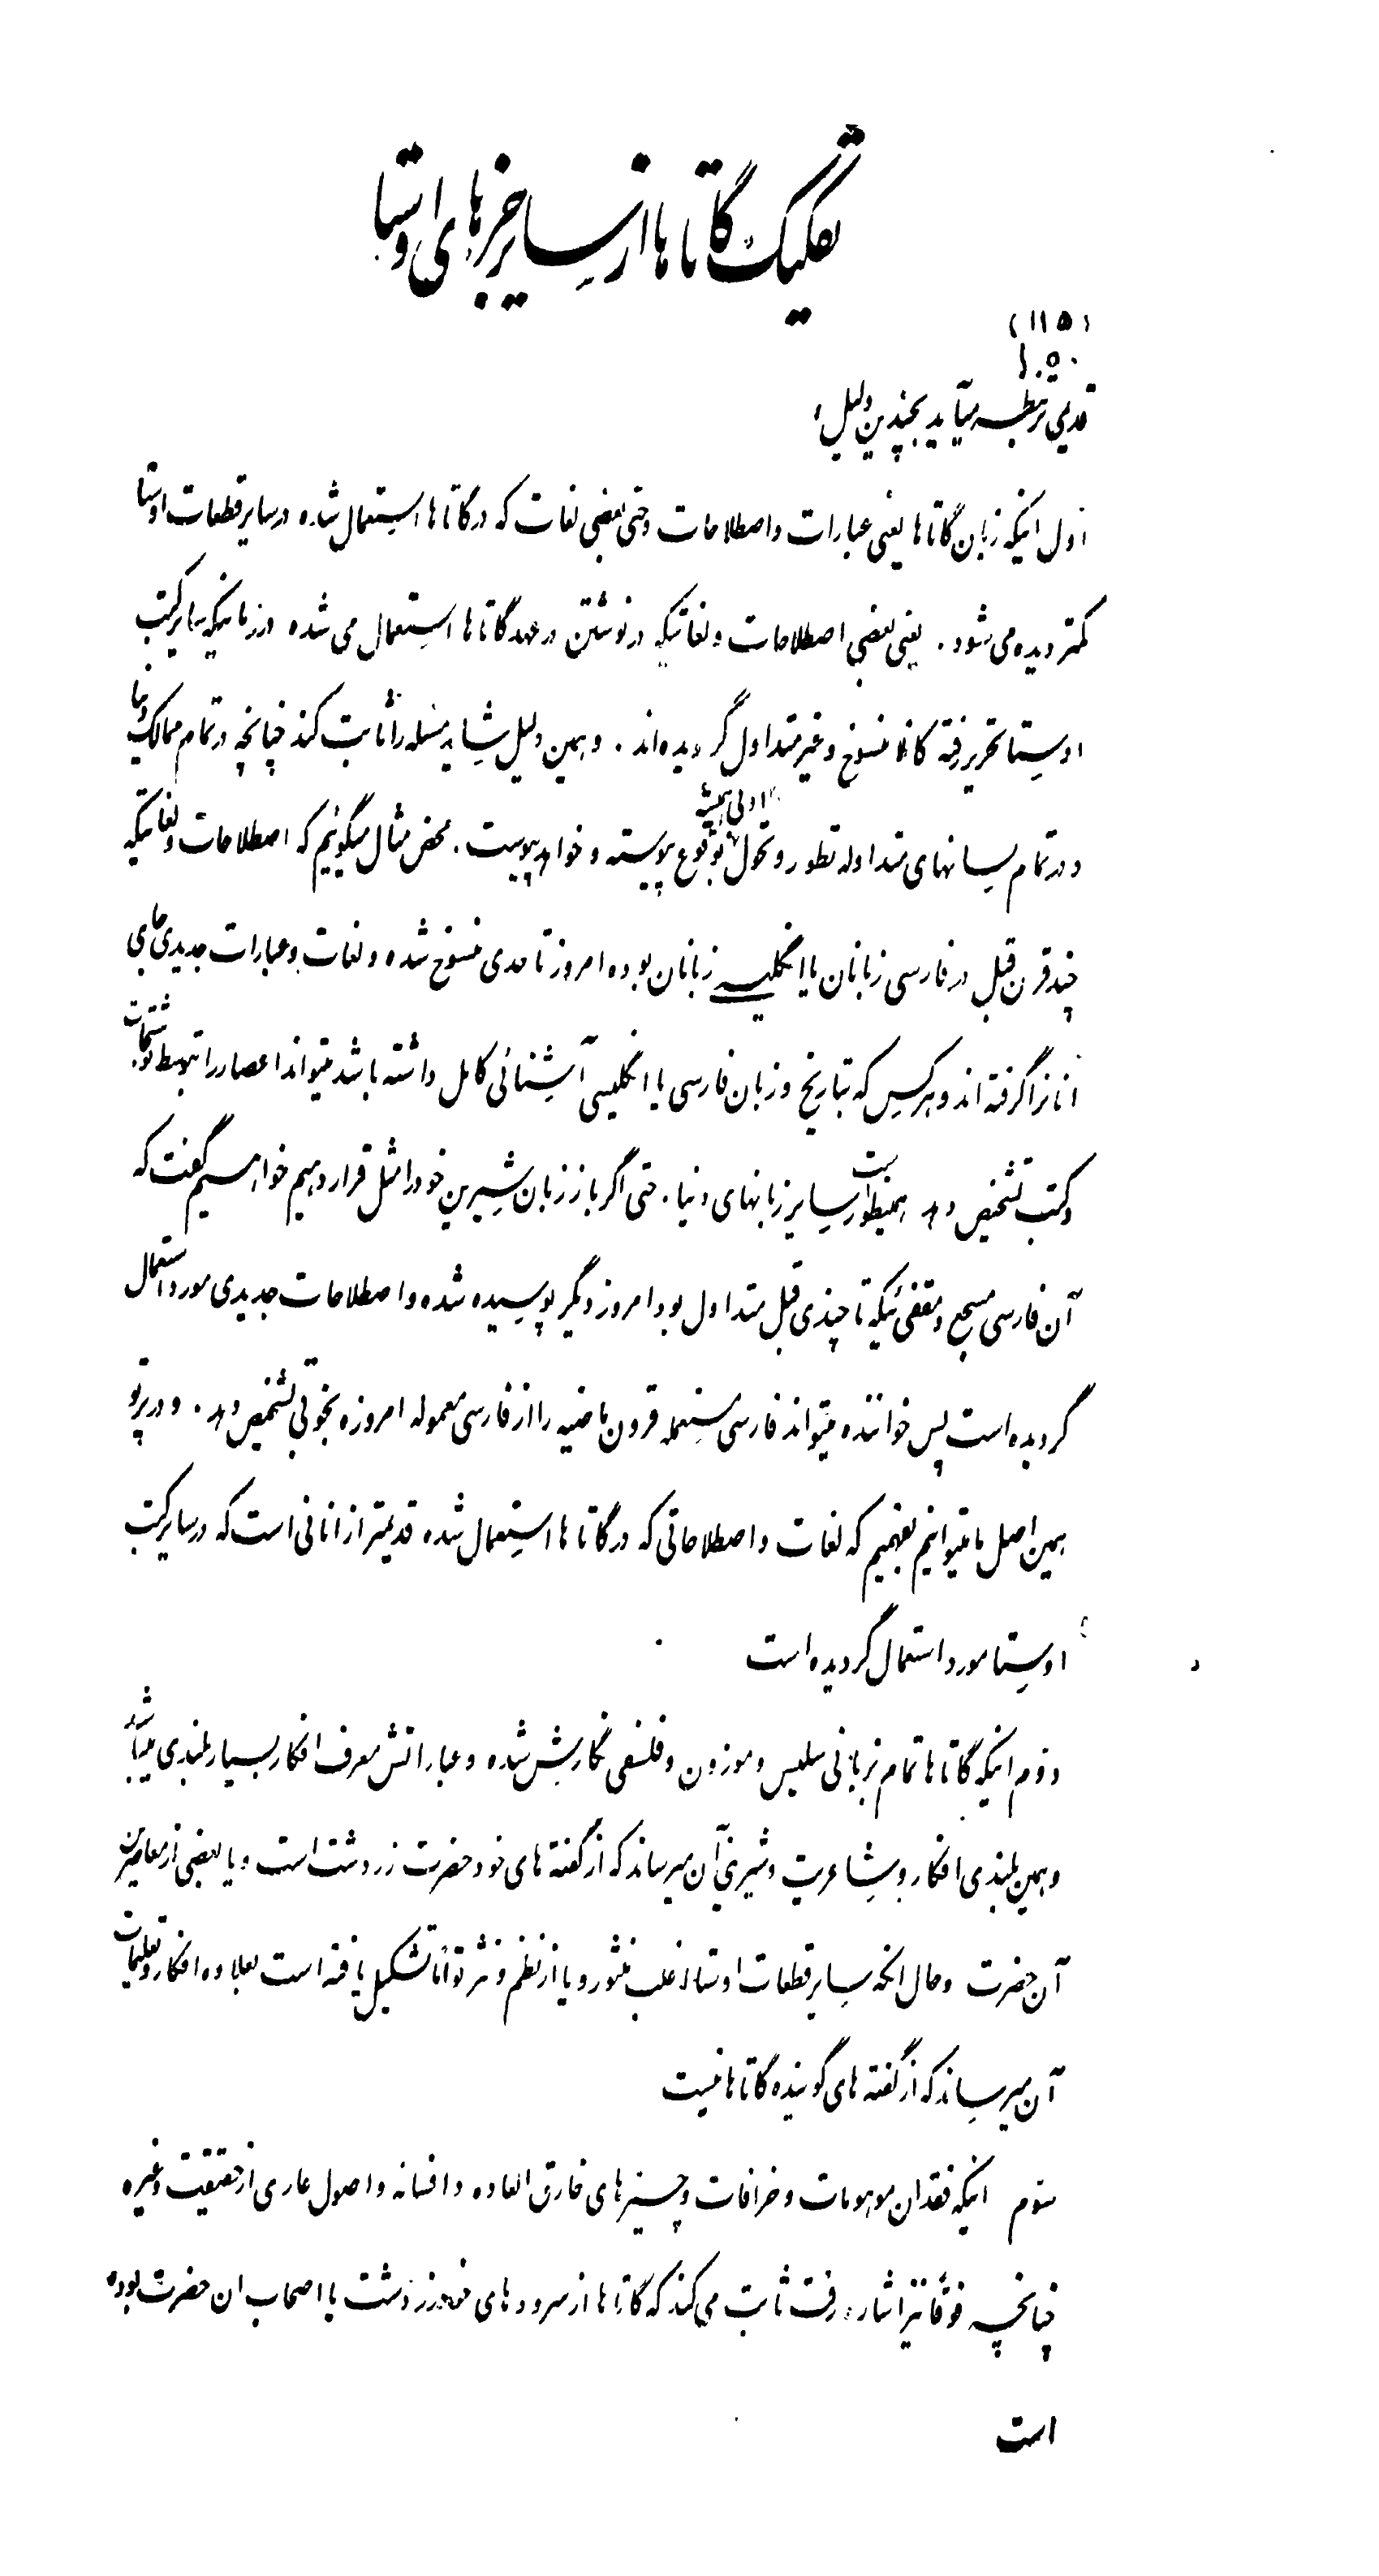 تفکیک گاتاها از سایر جزءهای اوستا
(۱۱۵)
۱۰۵۰
قدیمی‌تر بنظر میآید بچندین دلیل:
اول اینکه زبان گاتاها یعنی عبارات و اصطلاحات و حتی بعضی لغات که در گاتاها استعمال شده در سایر قطعات اوستا
کمتر دیده می‌شود. یعنی بعضی اصطلاحات و لغاتیکه در نوشتن در عهد گاتاها استعمال می‌شده در زمانیکه سایر کتب
اوستا تحریر رفته کاملا منسوخ و غیر متداول گردیده‌اند. و همین دلیل شاید مسئله را ثابت کند چنانچه در تمام ممالک دنیا
و در تمام لسانهای متداوله تطور و تحول ادبی همیشه بوقوع پیوسته و خواهد پیوست. محض مثال میگوئیم که اصطلاحات و لغاتیکه
چند قرن قبل در فارسی زبانان یا انگلیسی زبانان بوده امروز تا حدی منسوخ شده و لغات و عبارات جدیدی جای
آنانرا گرفته‌اند و هر کسی که بتاریخ و زبان فارسی یا انگلیسی آشنائی کامل داشته باشد میتواند اعصار را بتوسط نوشتجات
و کتب تشخیص دهد همینطور است سایر زبانهای دنیا. حتی اگر باز زبان شیرین خود را مثل قرار دهیم خواهیم گفت که
آن فارسی مسجع و مقفی‌ئیکه تا چندی قبل متداول بود امروز دیگر پوسیده شده و اصطلاحات جدیدی مورد استعمال
گردیده است پس خواننده میتواند فارسی مستعمله قرون ماضیه را از فارسی معموله امروزه بخوبی تشخیص دهد. و در پرتو
همین اصل ما میتوانیم بفهمیم که لغات و اصطلاحاتی که در گاتاها استعمال شده قدیمتر از انانی است که در سایر کتب
اوستا مورد استعمال گردیده است
دوم اینکه گاتاها تمام بزبانی سلیس و موزون و فلسفی نگارش شده و عباراتش معرف افکار بسیار بلندی میباشد
و همین بلندی افکار و شاعریت و شیرینی آن میرساند که از گفته های خود حضرت زردشت است و یا بعضی از معاصرین
آن حضرت و حال انکه سایر قطعات اوستا اغلب منثور و یا از نظم و نثر توأماً تشکیل یافته است بعلاوه افکار و تعلیمات
آن میرساند که از گفته های گوینده گاتاها نیست
سوم اینکه فقدان موهومات و خرافات و چیزهای خارق العاده و افسانه و اصول عاری از حقیقت و غیره
چنانچه فوقاً نیز اشاره رفت ثابت می‌کند که گاتاها از سرودهای خود زردشت یا اصحاب ان حضرت بوده
است